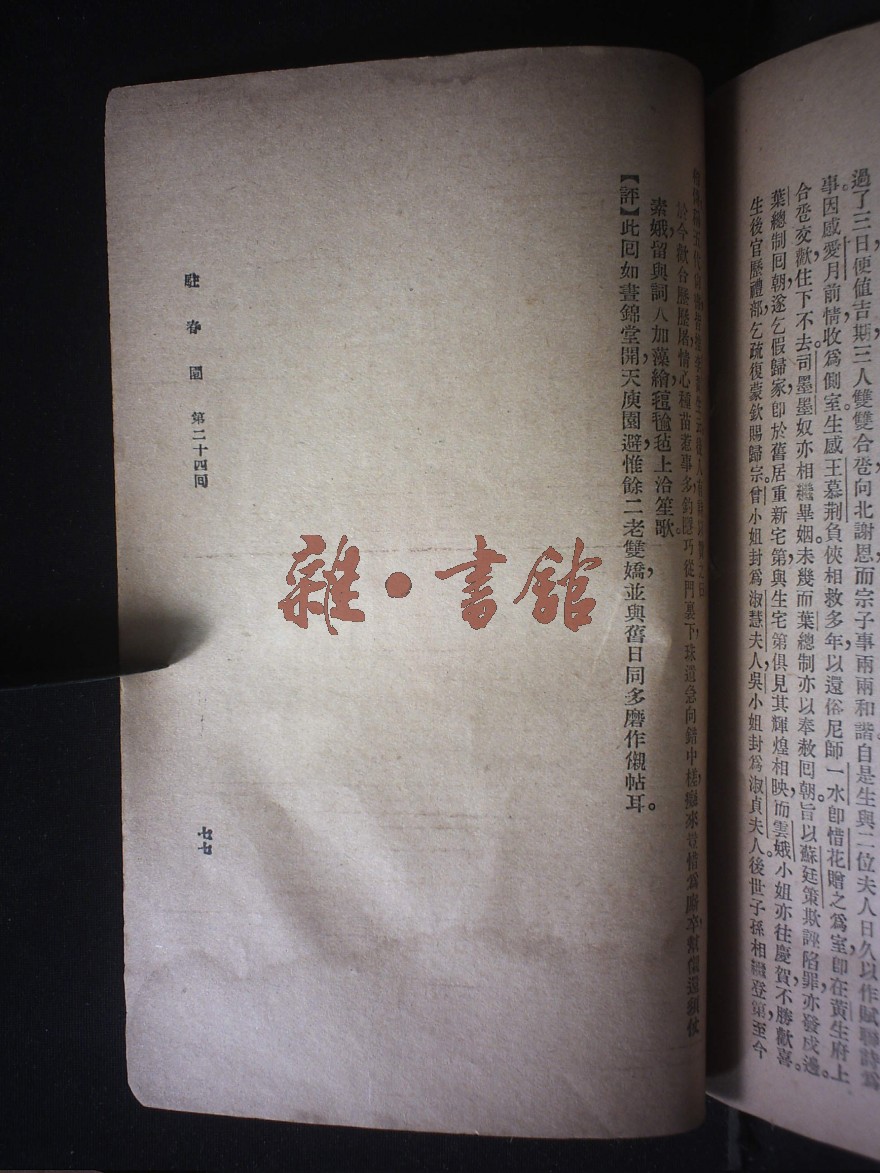 過了三日便値吉期三人雙雙合巹向北謝恩而宗子事兩兩和諧自是生與二位夫人日久以作賦聯詩爲
事因感愛月前情收爲側室生感王慕荆負俠相救多年以還俗尼師一水卽惜花贈之爲室卽在黃生府上
合巹交歡住下不去司墨墨奴亦相繼畢姻未幾而葉總制亦以奉赦囘朝旨以蘇廷策欺誣陷罪亦發戍邊。
葉總制囘朝遂乞假歸家卽於舊居重新宅第與生宅第俱見其輝煌相映而雲娥小姐亦往慶賀不勝歡喜。
生後官歷禮部乞疏復蒙欽賜歸宗曾小姐封爲淑慧夫人吳小姐封爲淑貞夫人後世子孫相繼登第至今
於今歡台歷歷屠情心種苗惹事多鈞隱巧從門裏下珠還急向錯中
素娥留與詞人加藻繪氍毹毡上洽笙歌。
【評】此囘如晝錦堂開天庾園避惟餘二老雙嬌並與舊日同多磨作儭帖耳。
駐春園 第二十四囘
廿七
雜·書館